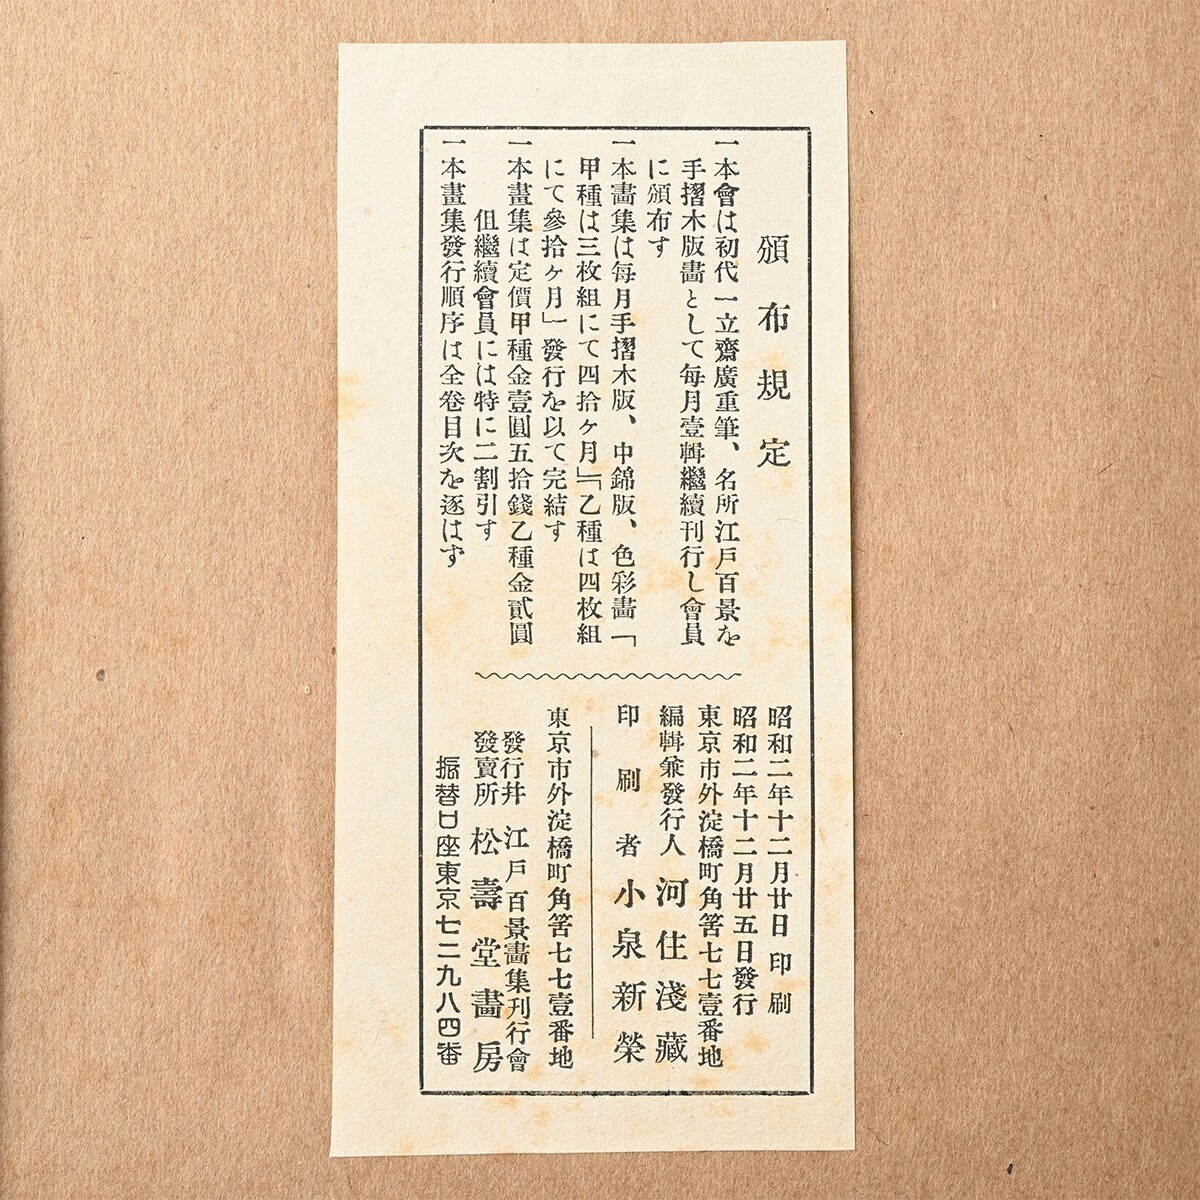 頒布規定
一本會は初代一立齋廣重筆、名所江戸百景を
手摺木版畵として毎月壹輯繼續刊行し會員
に頒布す
一本畵集は毎月手摺木版、中錦版、色彩畵「
甲種は三枚組にて四拾ヶ月」「乙種は四枚組
にて參拾ヶ月」發行を以て完結す
一本畫集は定價甲種金壹圓五拾錢乙種金貳圓
但繼續會員には特に二割引す
一本畫集發行順序は全卷目次を逐はず
昭和二年十二月廿日印刷
昭和二年十二月廿五日發行
東京市外淀橋町角筈七七壹番地
編輯兼發行人 河住淺藏
印刷者 小泉新榮
東京市外淀橋町角筈七七壹番地
發行并 江戸百景畵集刊行會
發賣所 松壽堂畵房
振替口座東京七二九八四番